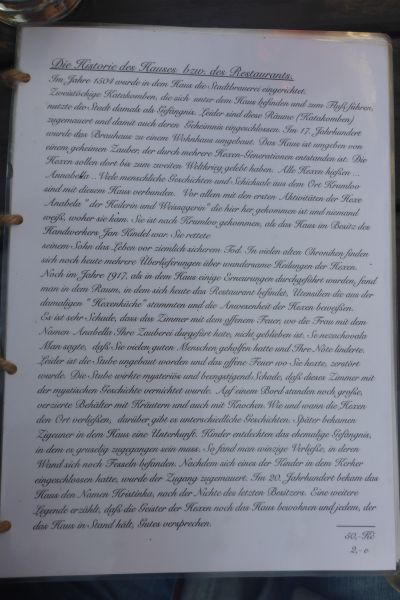 Die Historie des Hauses bzw. des Restaurants.
Im Jahre 1504 wurde in dem Haus die Stadtbrauerei eingerichtet.
Zweistöckige Katakomben, die sich unter dem Haus befinden und zum Fluß führen,
nutzte die Stadt damals als Gefängnis. Leider sind diese Räume (Katakomben)
zugemauert und damit auch deren Geheimnis eingeschlossen. Im 17. Jahrhundert
wurde das Brauhaus zu einem Wohnhaus umgebaut. Das Haus ist umgeben von
einem geheimen Zauber, der durch mehrere Hexen-Generationen entstanden ist. Die
Hexen sollen dort bis zum zweiten Weltkrieg gelebt haben. Alle Hexen hießen ...
Annabella .. Viele menschliche Geschichten und Schicksale aus dem Ort Krumlov
sind mit diesem Haus verbunden. Vor allem mit den ersten Aktivitäten der Hexe
Anabela " der Heilerin und Weissagerin" die hier her gekommen ist und niemand
weiß, woher sie kam. Sie ist nach Krumlov gekommen, als das Haus im Besitz des
Handwerkers Jan Kindel war. Sie rettete
seinem Sohn das Leben vor ziemlich sicherem Tod. In vielen alten Chroniken finden
sich noch heute mehrere Überlieferungen über wundersame Heilungen der Hexen.
Noch im Jahre 1917, als in dem Haus einige Erneurungen durchgeführt wurden, fand
man in dem Raum, in dem sich heute das Restaurant befindet, Utensilien die aus der
damaligen " Hexenküche" stammten und die Anwesenheit der Hexen beweßen.
Es ist sehr Schade, dass das Zimmer mit dem offenem Feuer, wo die Frau mit dem
Namen Anabella Ihre Zauberei durgefürt hate, nicht geblieben ist. Se nezachovala
Man sagte, daß Sie vielen guten Menschen geholfen hatte und Ihre Nöte linderte.
Leider ist die Stube umgebaut worden und das offene Feuer wo Sie hexte, zerstört
wurde. Die Stube wirkte mysteriös und beengstigend Schade, daß dieses Zimmer mit
der mystischen Geschichte vernichtet wurde. Auf einem Bord standen noch große,
verzierte Behälter mit Kräutern und auch mit Knochen. Wie und wann die Hexen
den Ort verließen, darüber gibt es unterschiedliche Geschichten. Später bekamen
Zigeuner in dem Haus eine Unterkunft. Kinder entdechten das ehemalige Gefängnis,
in dem es gruselig zugegangen sein muss. So fand man winzige Verließe, in deren
Wänd sich noch Fesseln befinden. Nachdem sich eines der Kinder in dem Kerker
eingeschlossen hatte, wurde der Zugang zugemauert. Im 20. Jahrhundert bekam das
Haus den Namen Kristinka, nach der Nichte des letzten Besitzers. Eine weitere
Legende erzählt, daß die Geister der Hexen noch das Haus bewohnen und jedem, der
das Haus in Stand hält, Gutes versprechen.
50,-Kč
2,- e